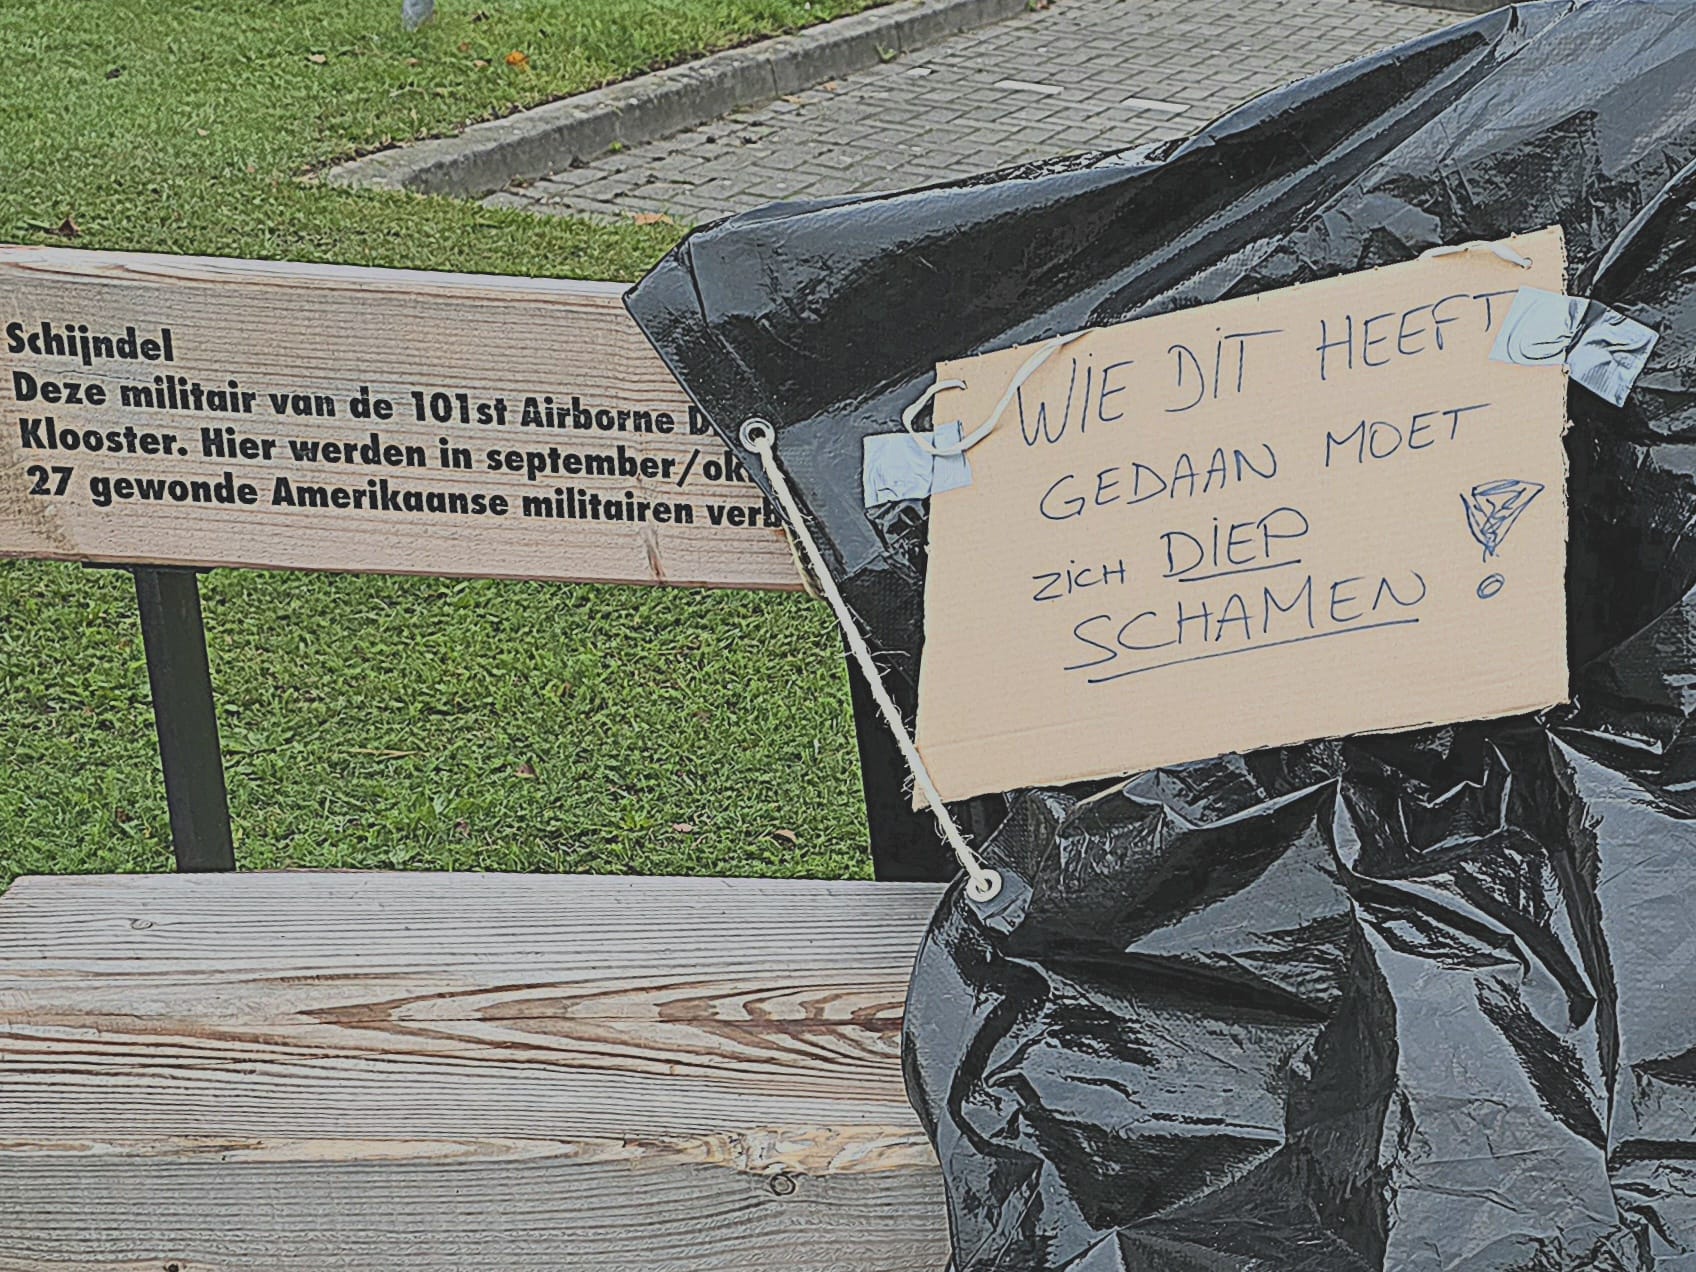 Schijndel
Deze militair van de 101st Airborne
Klooster. Hier werden in september/ok
27 gewonde Amerikaanse militairen verb
WIE DIT HEEFT
GEDAAN MOET
ZICH DIEP
SCHAMEN !